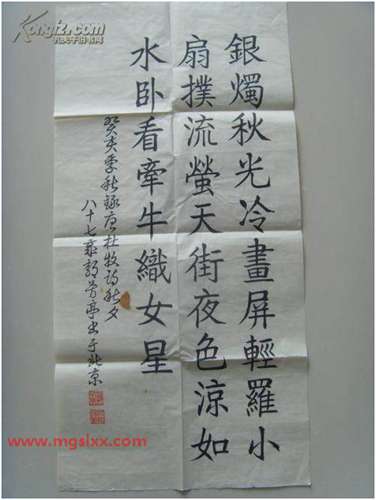 Kongfz.com
孔夫子旧书网
銀燭秋光冷畫屏輕羅小
扇撲流螢天街夜色涼如
水卧看牽牛織女星
癸亥季秋録唐杜牧詩秋夕
八十七芳亭书于北京
www.mgslxx.com